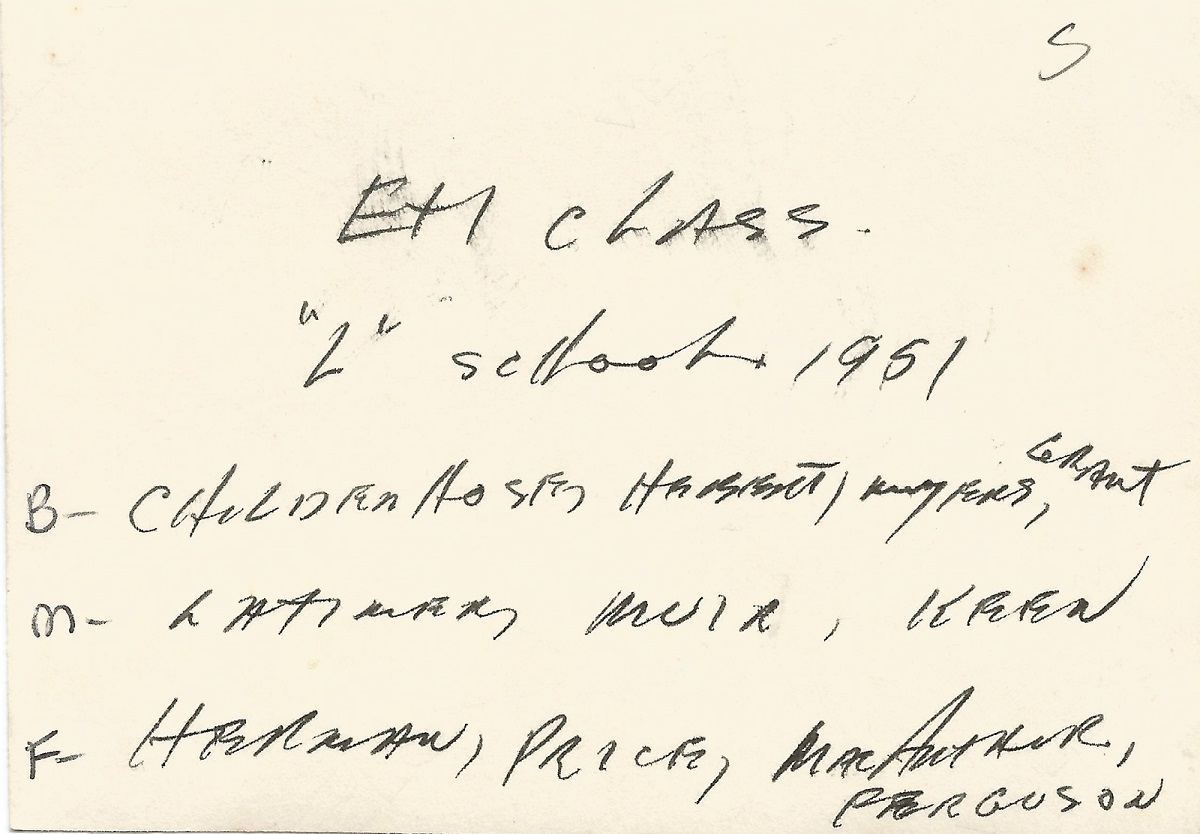 S
EM CLASS.
"L" SCHOOL 1951
B- CHILDERHOSE, HEBERT, MYERS, GRANT
M- LATIMER, MUIR, KEEN
F- HERMAN, PRICE, MACARTHUR,
FERGUSON